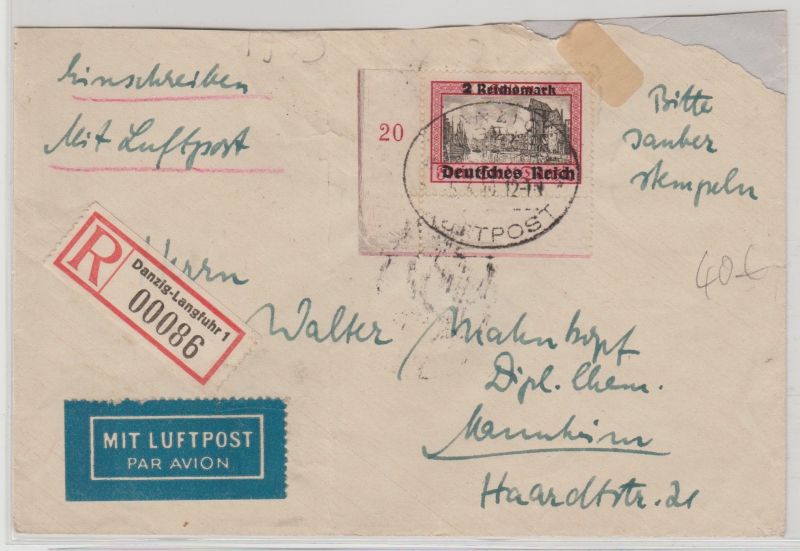 Einschreiben
Mit Luftpost
20
2 Reichsmark
Deutsches Reich
LUFTPOST
Bitte
sauber
stempeln
40€
R
Danzig-Langfuhr 1
00086
Herrn
Walter Mahnkopf
Dipl. Chem.
Mannheim
Haardtstr. 21
MIT LUFTPOST
PAR AVION